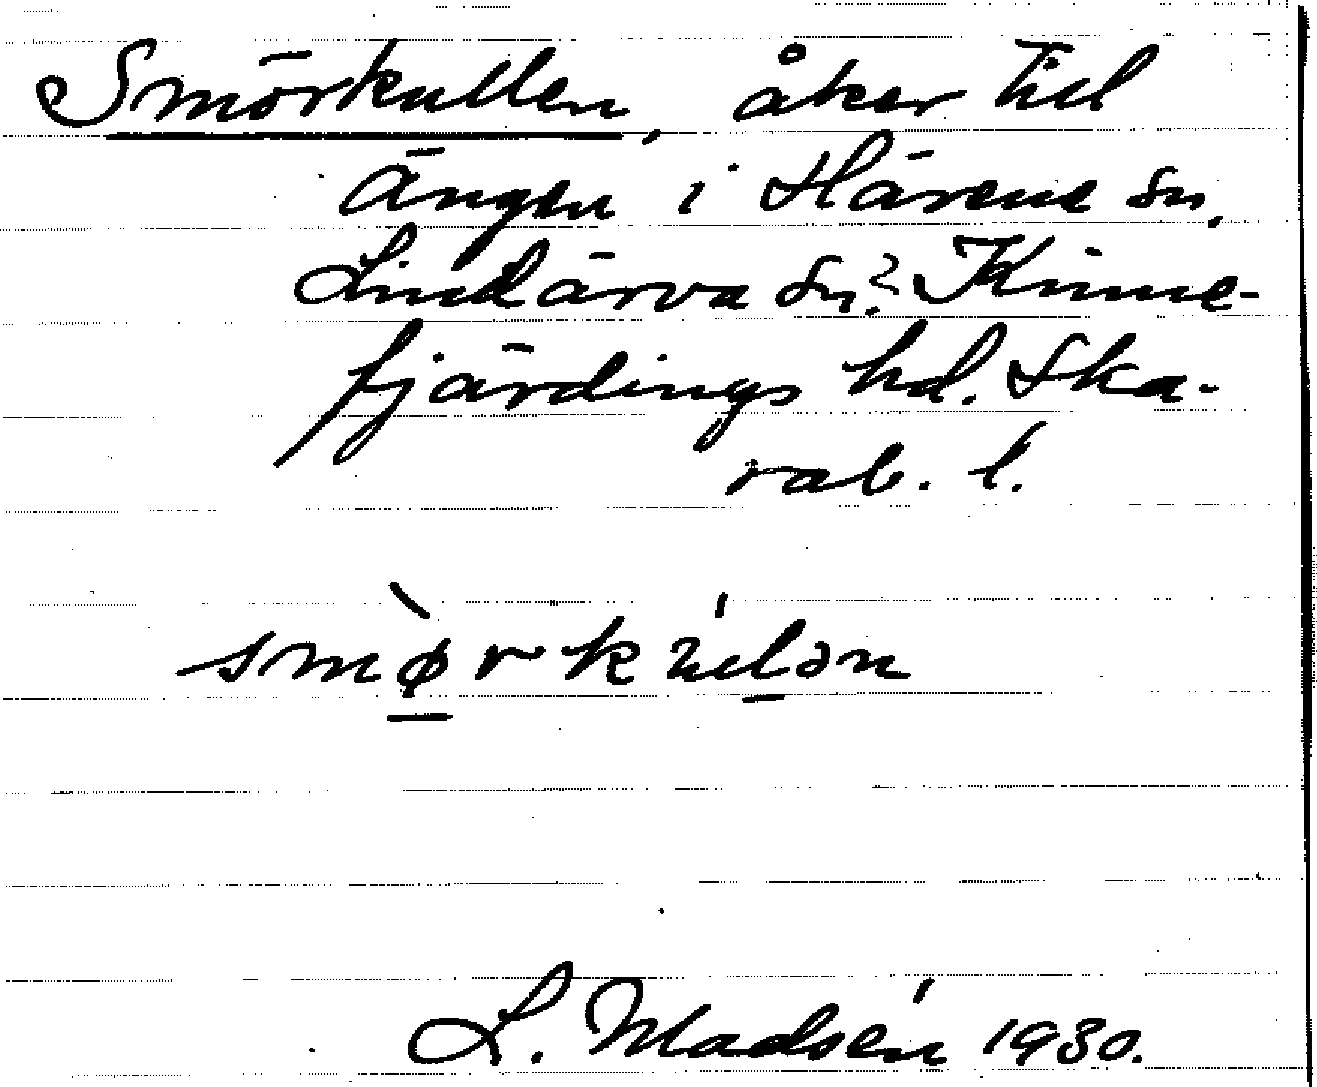 Smörkullen, åker till
Ängen i Härene sn,
Lindärva sn? Kinne-
fjärdings hd. Ska-
rab. l.
smø̀rkúlən
L. Madsén 1930.